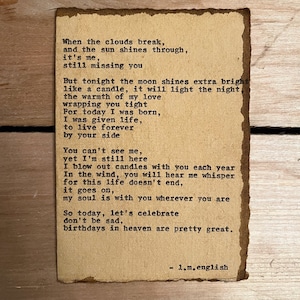 When the clouds break,
and the sun shines through,
it's me,
still missing you
But tonight the moon shines extra bright
like a candle, it will light the night,
the warmth of my love
wrapping you tight
For today I was born,
I was given life,
to live forever
by your side
You can't see me,
yet I'm still here
I blow out candles with you each year
In the wind, you will hear me whisper
for this life doesn't end,
it goes on,
my soul is with you wherever you are
So today, let's celebrate
don't be sad,
birthdays in heaven are pretty great.
- l.m.english